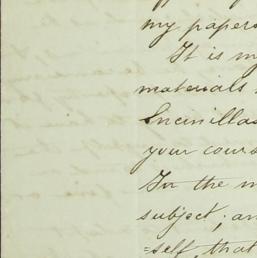 my papers
It is m
materials
Encinillas
your cours
In the m
subject, an
=self, that